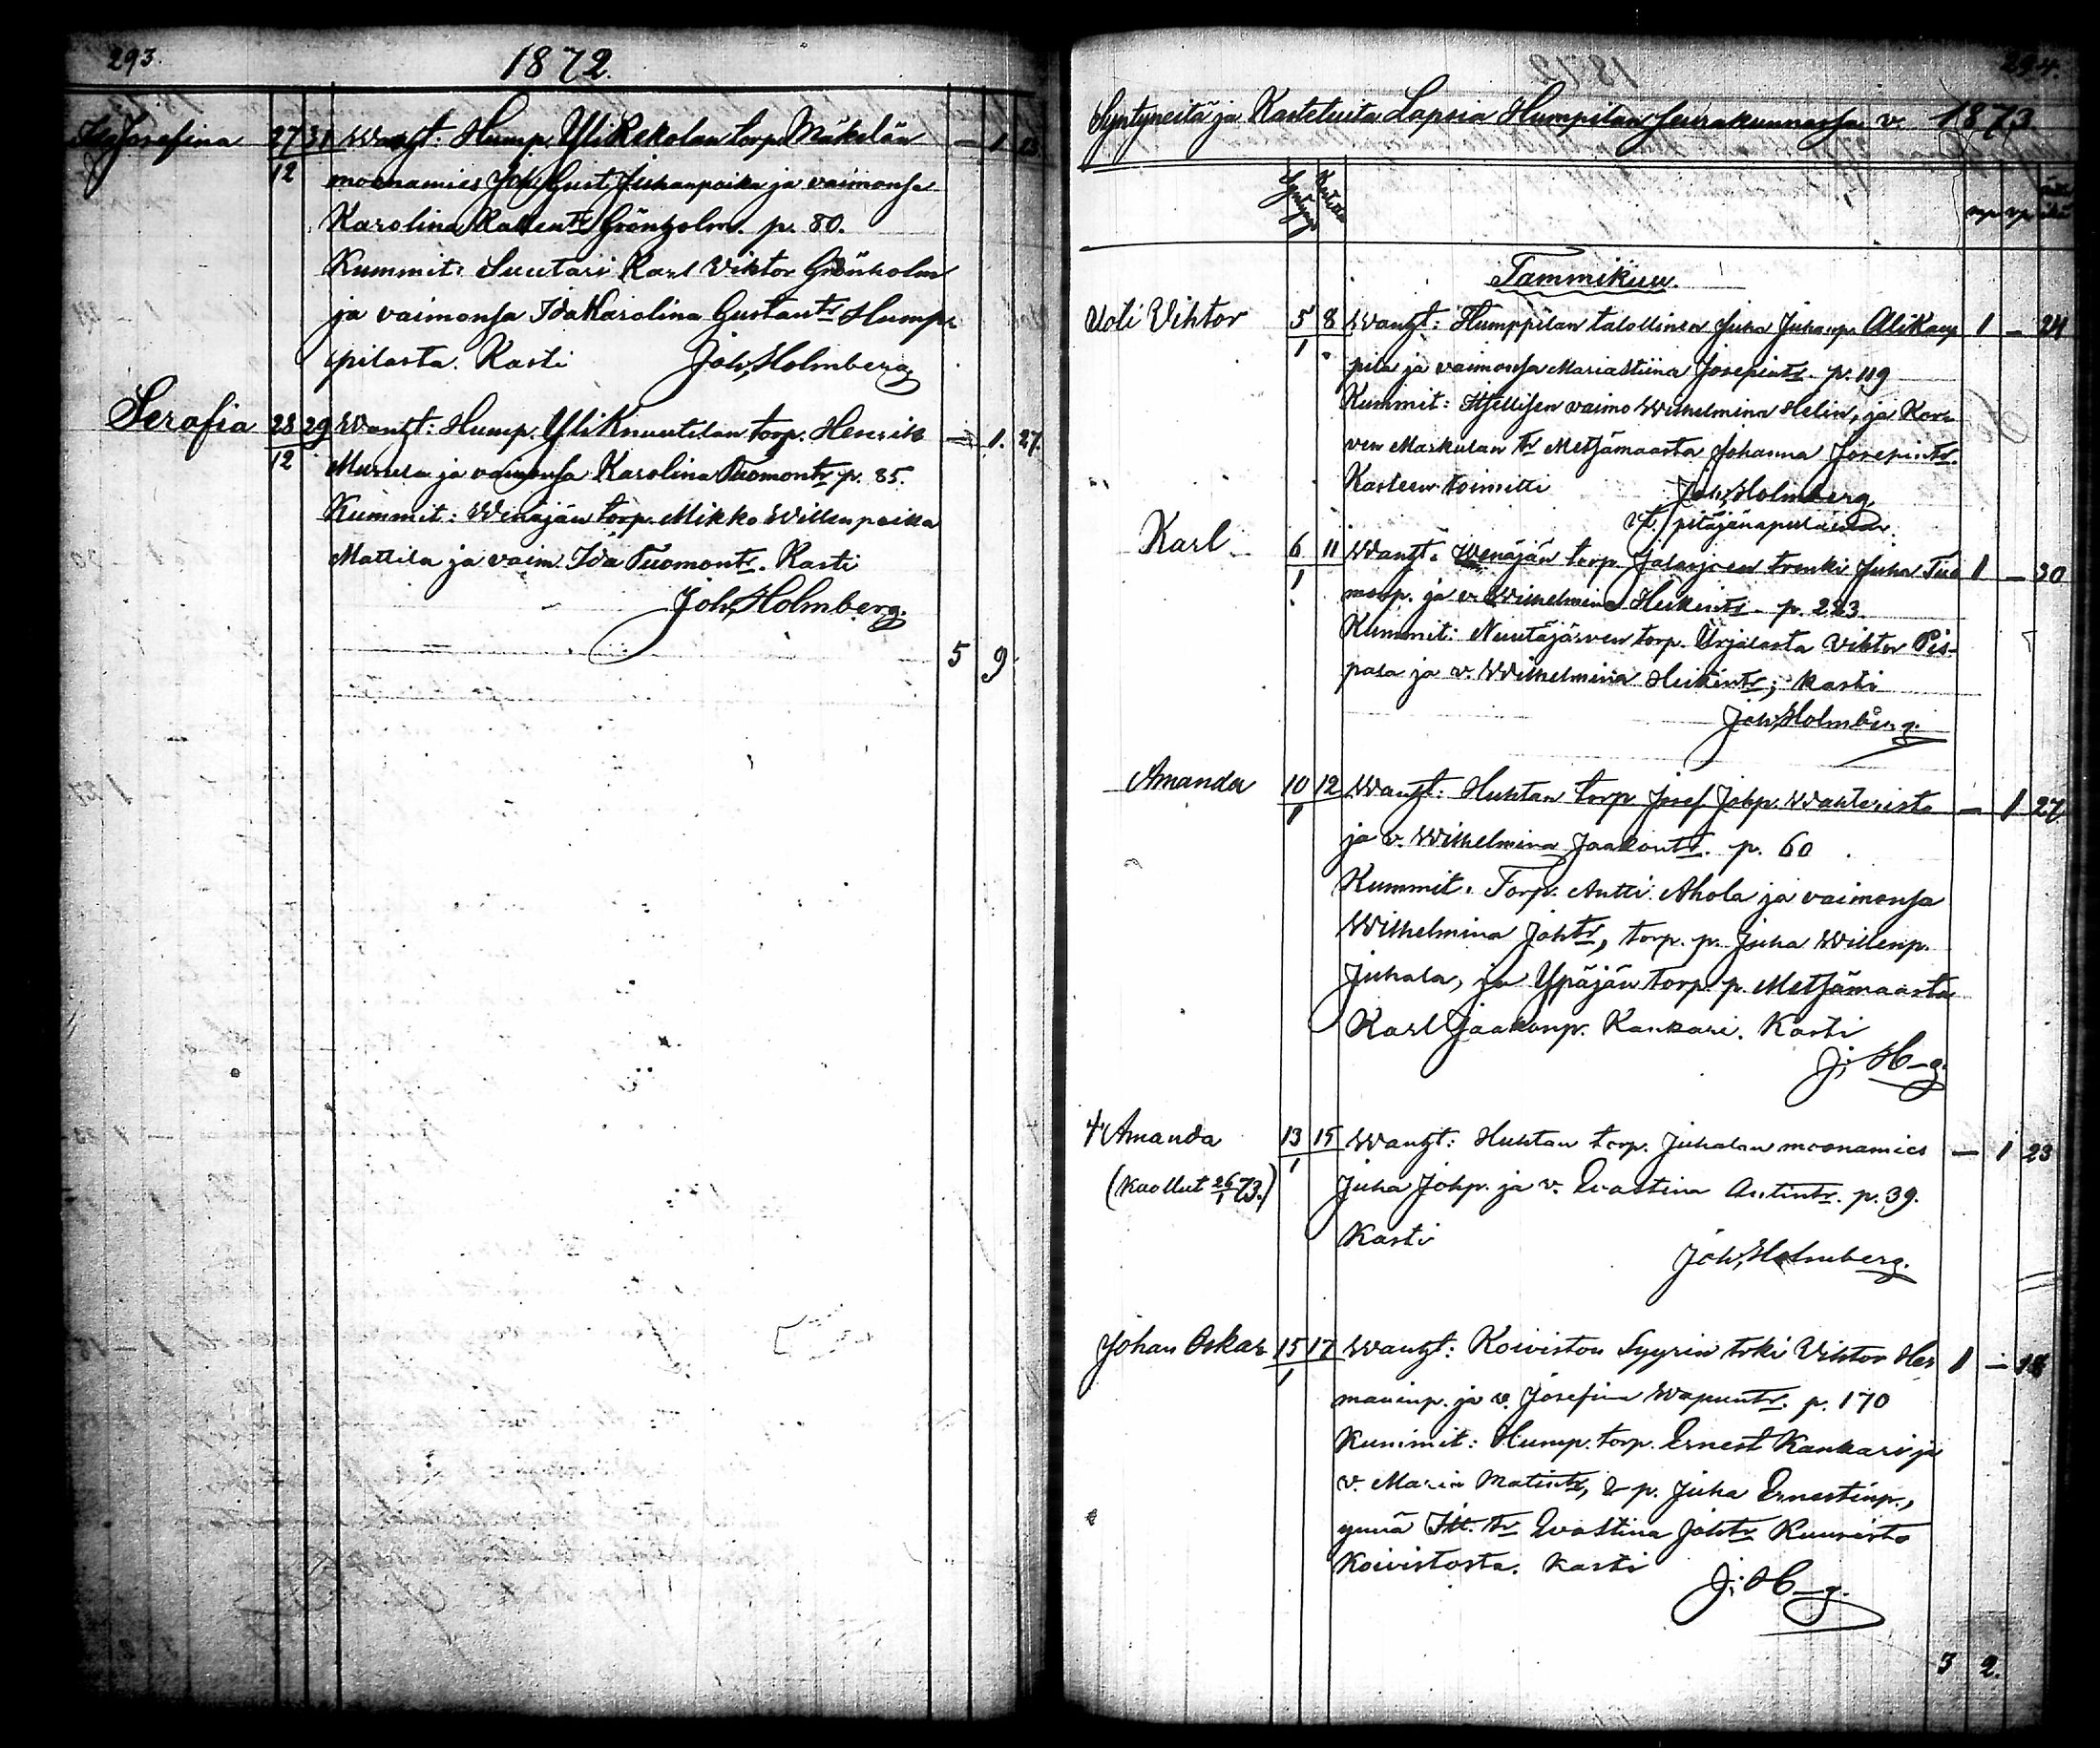 293.
1872.
Ida Josefina 27/12 31 Wanht: Hump. YliRekolan torp. Mäkelän — 1 23.
moonamies Joh. Gust. Juhanpoika ja vaimonsa
Karolina Kallentr Grönholm. p. 80.
Kummit: Suutari Karl Viktor Grönholm
ja vaimonsa Ida Karolina Gustantr Hump-
pilasta. Kasti Joh. Holmberg
Serafia 28/12 29 Wanht: Hump. YliKnuutilan torp. Henrik — 1. 27.
ja vaimonsa Karolina Tuomontr p. 85.
Kummit: Wenäjän torp. Mikko Willenpoika
Mattila ja vaim. Ida Tuomontr. Kasti
Joh. Holmberg.
5 9.
294.
Syntyneitä ja Kastetuita Lapsia Humpilan seurakunnassa v. 1873.
Syntynyt Kastettu mp. vp.
Tammikuu.
Viktor 5/1 8 Wanht: Humppilan talollinen Juha Juhanp. AliKaup 1 — 24
pila ja vaimonsa Maria Stiina Josepintr. p. 119
Kummit: Itsellisen vaimo Wilhelmina Helin, ja Kor-
ven Markulan tr Metsämaasta Johanna Josepintr.
Kasteen toimitti Joh. Holmberg,
vt. pitäjänapulainen.
Karl. 6/1 11 Wanht: Wenäjän torp. Jalasjoen trenki Juha Tuo 1 — 30
monp. ja v. Wilhelmina Heikintr. p. 223.
Kummit: Nuutäjärven torp. Urjalasta Viktor Pis-
pala ja v. Wilhelmina Heikintr; kasti
Joh. Holmberg.
Amanda 10/1 12 Wanht: Huhtan torp. Josef Johp. Wahteristo — 1 27.
ja v. Wilhelmina Jaakontr. p. 60
Kummit: Torp. Antti Ahola ja vaimonsa
Wilhelmina Johtr, torp. p. Juha Willenp.
Juhala, ja Ypäjän torp. p. Metsämaasta
Karl Jaakonp. Kankari. Kasti
J. H—g.
† Amanda 13/1 15 Wanht: Huhtan torp. Juhalan moonamies — 1 23
(Kuollut 26/1 73.) Juha Johp. ja v. Evastina Antintr. p. 39.
Kasti
Joh. Holmberg.
Johan Oskar 15/1 17 Wanht: Koiviston Syyrin trki Viktor Her 1 — 18
maninp. ja v. Josefina Wapuntr. p. 170
Kummit: Hump. torp. Ernest Kankari ja
v. Maria Matintr, & p. Juha Ernestinp.,
ynnä Itt. tr Evastina Johtr Kuusisto
Koivistosta. Kasti J. H—g.
3 2.